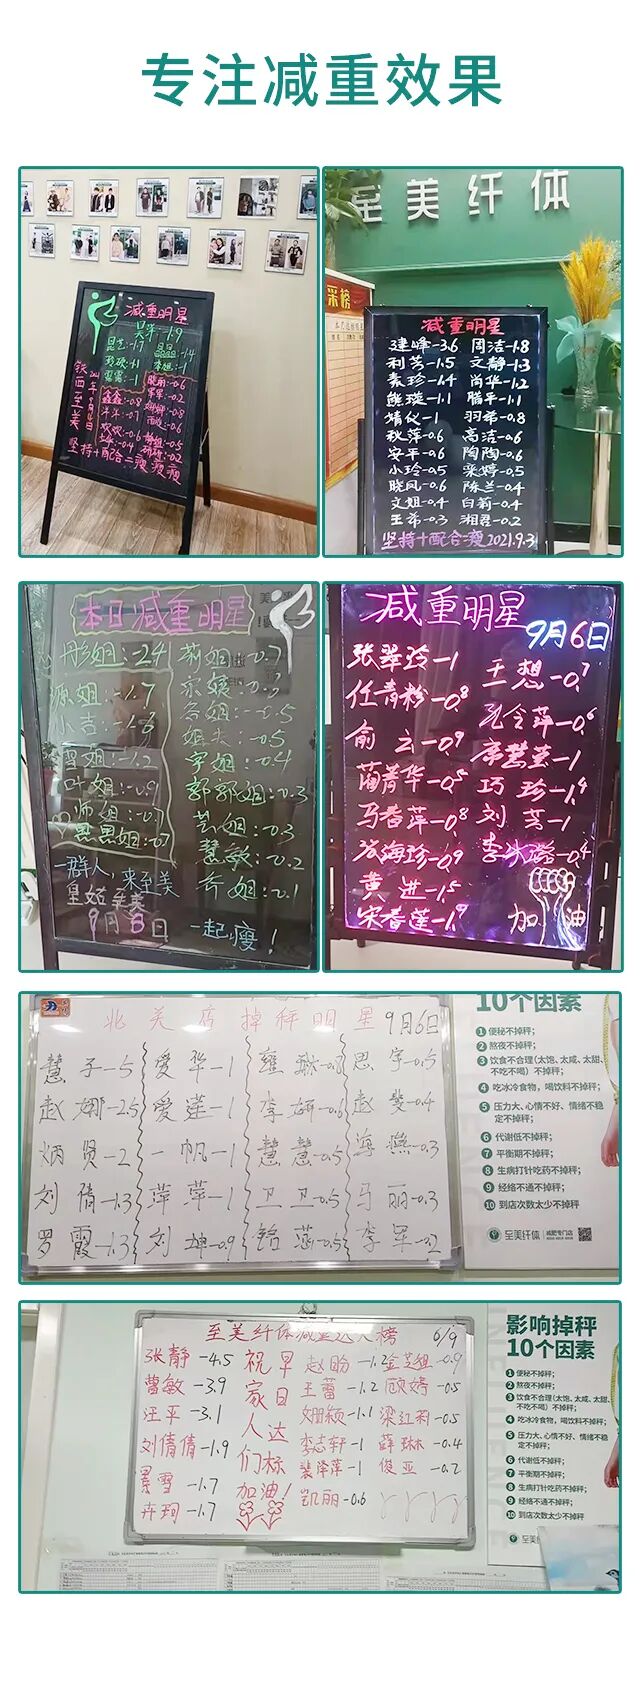 专注减重效果
减重明星
昆艺-1.7
晶晶-1.4
珍砚-1
李姐-1
露露-1
铁西至美
坚持+配合=瘦瘦瘦
至美纤体
减重明星
建峰-3.6 周洁-1.8
利芳-1.5 文静-1.3
素珍-1.4 肖华-1.2
熊璇-1.1 腊平-1.1
婧仪-1 羽希-0.8
秋萍-0.6 高洁-0.6
安平-0.6 陶陶-0.6
小玲-0.5 梁婷-0.5
晓凤-0.6 陈兰-0.4
文姐-0.4 白莉-0.4
王希-0.3 湘君-0.2
坚持+配合=瘦 2021.9.3
本日减重明星
彤姐:-2.4 莉姐:-0.7
源姐:-1.7
小吉:-1.6 名姐:-0.5
雪姐:-1.2 姐夫:-0.5
叶姐:-0.9 宇姐:-0.4
师姐:-0.7 郭郭姐:-0.3
黑黑姐:-0.7 芸姐:-0.3
慧敏:-0.2
乔姐:-0.1
一群人,来至美
9月8日 一起瘦!
减重明星
9月6日
张翠玲-1 王想-0.7
任青粉-0.8 孔令萍-0.6
俞云-0.9 席慧莹-1
蔺菁华-0.5 巧珍-1.4
马香萍-0.8 刘芳-1
张海珍-0.9
黄进-1.5
宋香莲-1.7 加油
北美店掉秤明星9月6日
慧子-5 爱华-1 思宇-0.5
赵娜-2.5 爱莲-1 李妍-0.6 赵斐-0.4
炳贤-2 一帆-1 慧慧-0.5 海燕-0.3
刘倩-1.3 萍萍-1 卫卫-0.5 马丽-0.3
罗霞-1.3 刘坤-0.9 铭燕-0.5 李军-0.2
10个因素
1 便秘不掉秤;
2 熬夜不掉秤;
3 饮食不合理(太饱、太咸、太甜、
不吃不喝)不掉秤;
4 吃冰冷食物,喝饮料不掉秤;
5 压力大、心情不好、情绪不稳
定不掉秤;
6 代谢低不掉秤;
7 平衡期不掉秤;
8 生病打针吃药不掉秤;
9 经络不通不掉秤;
10 到店次数太少不掉秤
至美纤体 减肥专门店
至美纤体减重达人榜 6/9
张静-4.5
曹敏-3.9
汪平-3.1
刘倩倩-1.9
景雪-1.7
卉珂-1.7
祝家人们加油!
早日达标
赵盼-1.2 金芝姐-0.9
王蕾-1.2 顾婷-0.5
姗颖-1.1 梁红莉-0.5
李志轩-1 薛琳-0.4
裴泽萍-1 俊亚-0.2
凯丽-0.6
影响掉秤
10个因素
1 便秘不掉秤;
2 熬夜不掉秤;
3 饮食不合理(太饱、太咸、太甜、
不吃不喝)不掉秤;
4 吃冰冷食物,喝饮料不掉秤;
5 压力大、心情不好、情绪不稳
定不掉秤;
6 代谢低不掉秤;
7 平衡期不掉秤;
8 生病打针吃药不掉秤;
9 经络不通不掉秤;
10 到店次数太少不掉秤
至美纤体